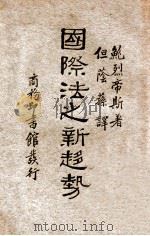 鮑烈帝斯著
但蔭蓀譯
國際法之新趨勢
商務印書館發行
www.mtoou.info